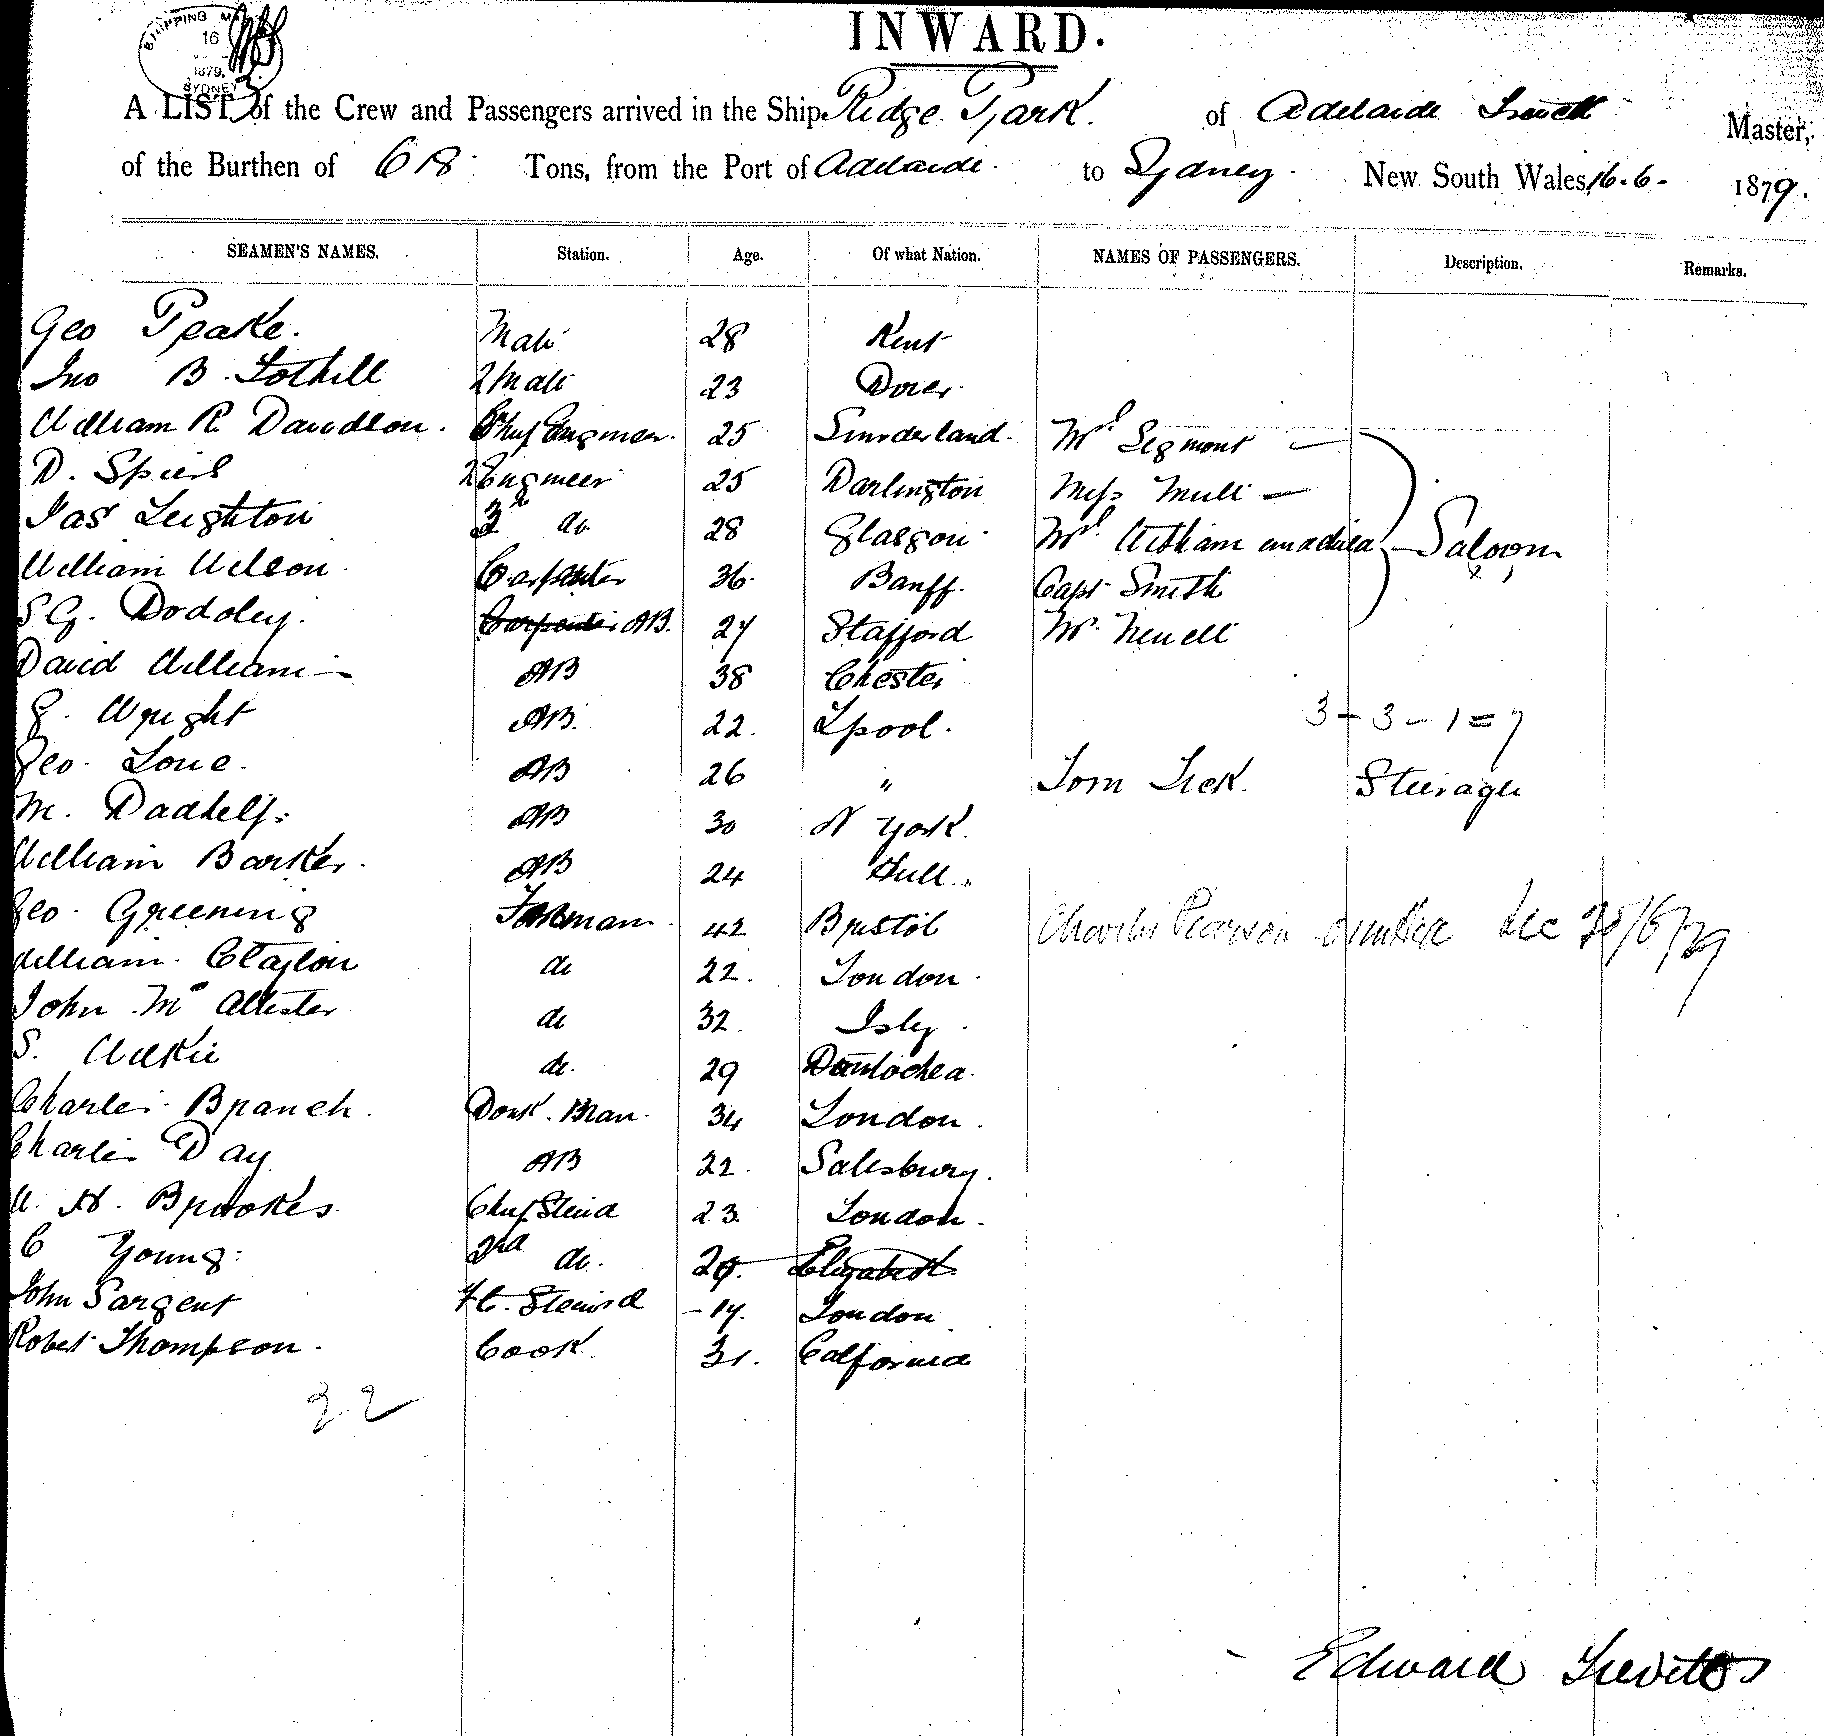 SHIPPING MA
16
1879
SYDNEY
INWARD.
A LIST of the Crew and Passengers arrived in the Ship Ridge Park. of Adelaide Master,
of the Burthen of 618 Tons, from the Port of Adelaide to Sydney New South Wales, 16.6. 1879.
SEAMEN'S NAMES. Station. Age. Of what Nation. NAMES OF PASSENGERS. Description. Remarks.
Geo Peake. Mate 28 Kent
Jno B. Tothill 2 Mate 23 Dover
William R. Davidson. Chief Engineer 25 Sunderland Mrs Segmont
D. Spiers 2 Engineer 25 Darlington Miss
Jas Leighton 3rd do 28 Glasgow Mrs Saloon
William Wilson Carpenter 36 Banff. Capt Smith
S G. Carpenter AB. 27 Stafford Mr. Newell
David Williams AB 38 Chester
G. Wright AB. 22. Lpool. 3 - 3 - 1 = 7
Geo. Love. AB 26 " Tom Steerage
M. AB 30 N York.
William Barker. AB 24 Hull
Geo. Greening Fireman 42 Bristol Charles Pearson
William Clayton do 22. London
John McAllester do 32
S. Wilkie do. 29
Charles Branch. Donk. Man. 34 London.
Charles Day AB 22. Salesbury.
W. H. Brookes Chief Stewd 23 London.
C Young. 2nd do. 29. Elizabeth
John Sargent Steward 17. London
Robert Thompson. Cook 31. California
22
Edward